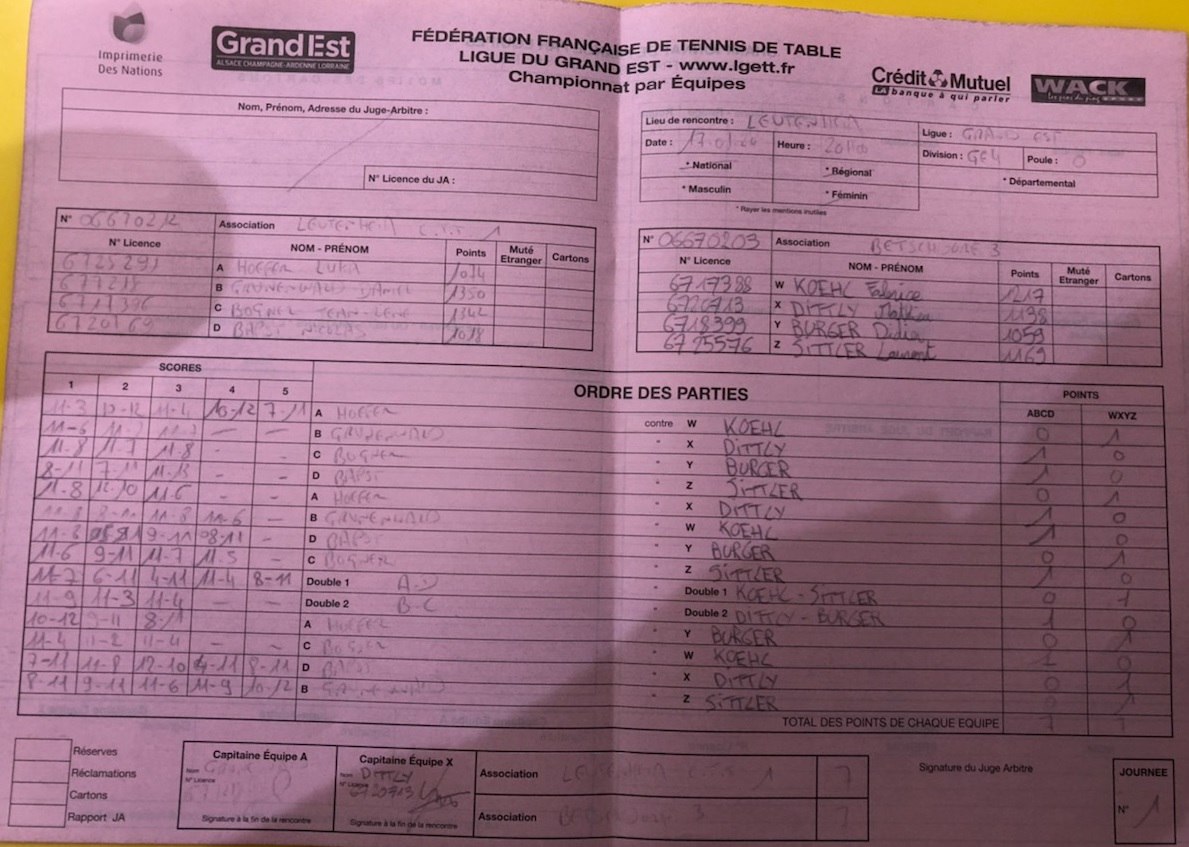 Imprimerie
Des Nations
Grand Est
ALSACE CHAMPAGNE-ARDENNE LORRAINE
FÉDÉRATION FRANÇAISE DE TENNIS DE TABLE
LIGUE DU GRAND EST - www.lgett.fr
Championnat par Équipes
Crédit Mutuel
LA banque à qui parler
WACK
Nom, Prénom, Adresse du Juge-Arbitre :
N° Licence du JA :
Lieu de rencontre : LEUTENHEIM
Ligue : GRAND EST
Date : Heure : 20H00
Division : GE4 Poule : 0
* National * Régional * Départemental
* Masculin * Féminin
* Rayer les mentions inutiles
N° Association LEUTENHEIM 1
N° Licence NOM - PRÉNOM Points Muté Etranger Cartons
6725291 A HOEFFER LUKA
B GRUNENWALD DANIEL 1350
C BOGNER JEAN-RENE 1342
D BAPST NICOLAS 1018
N° 06670203 Association BETSCHDORF 3
N° Licence NOM - PRÉNOM Points Muté Etranger Cartons
6717388 W KOEHL Fabrice 1217
6720713 X DITTLY 1138
6718399 Y BURGER Didier 1059
6725576 Z SITTLER Laurent 1169
SCORES
1 2 3 4 5
ORDRE DES PARTIES
POINTS
ABCD WXYZ
11-3 11-4 10-12 7-11 A HOEFFER contre W KOEHL 0 1
11-6 - - B GRUNENWALD " X DITTLY 1 0
11-8 11-7 11-8 - - C BOGNER " Y BURGER 1 0
8-11 7-11 11-13 - - D BAPST " Z SITTLER 0 1
11-8 12-10 11-6 - - A HOEFFER " X DITTLY 1 0
11-8 8-11 11-8 11-6 - B GRUNENWALD " W KOEHL 1 0
9-11 08-11 - D BAPST " Y BURGER 0 1
11-6 9-11 11-7 11-5 - C BOGNER " Z SITTLER 1 0
11-7 6-11 4-11 11-4 8-11 Double 1 A-D " Double 1 KOEHL - SITTLER 0 1
11-9 11-3 11-4 - - Double 2 B-C " Double 2 DITTLY - BURGER 1 0
10-12 9-11 8-11 A HOEFFER " Y BURGER 0 1
11-4 11-2 11-4 - - C BOGNER " W KOEHL 1 0
7-11 11-8 12-10 4-11 8-11 D BAPST " X DITTLY 0 1
8-11 9-11 11-6 11-9 10-12 B GRUNENWALD " Z SITTLER 0 1
TOTAL DES POINTS DE CHAQUE EQUIPE 7 7
Réserves
Réclamations
Cartons
Rapport JA
Capitaine Équipe A
Nom
N° Licence
Signature à la fin de la rencontre
Capitaine Équipe X
Nom DITTLY
N° Licence 6720713
Signature à la fin de la rencontre
Association LEUTENHEIM 1 7
Association BETSCHDORF 3 7
Signature du Juge Arbitre
JOURNEE
N° 1